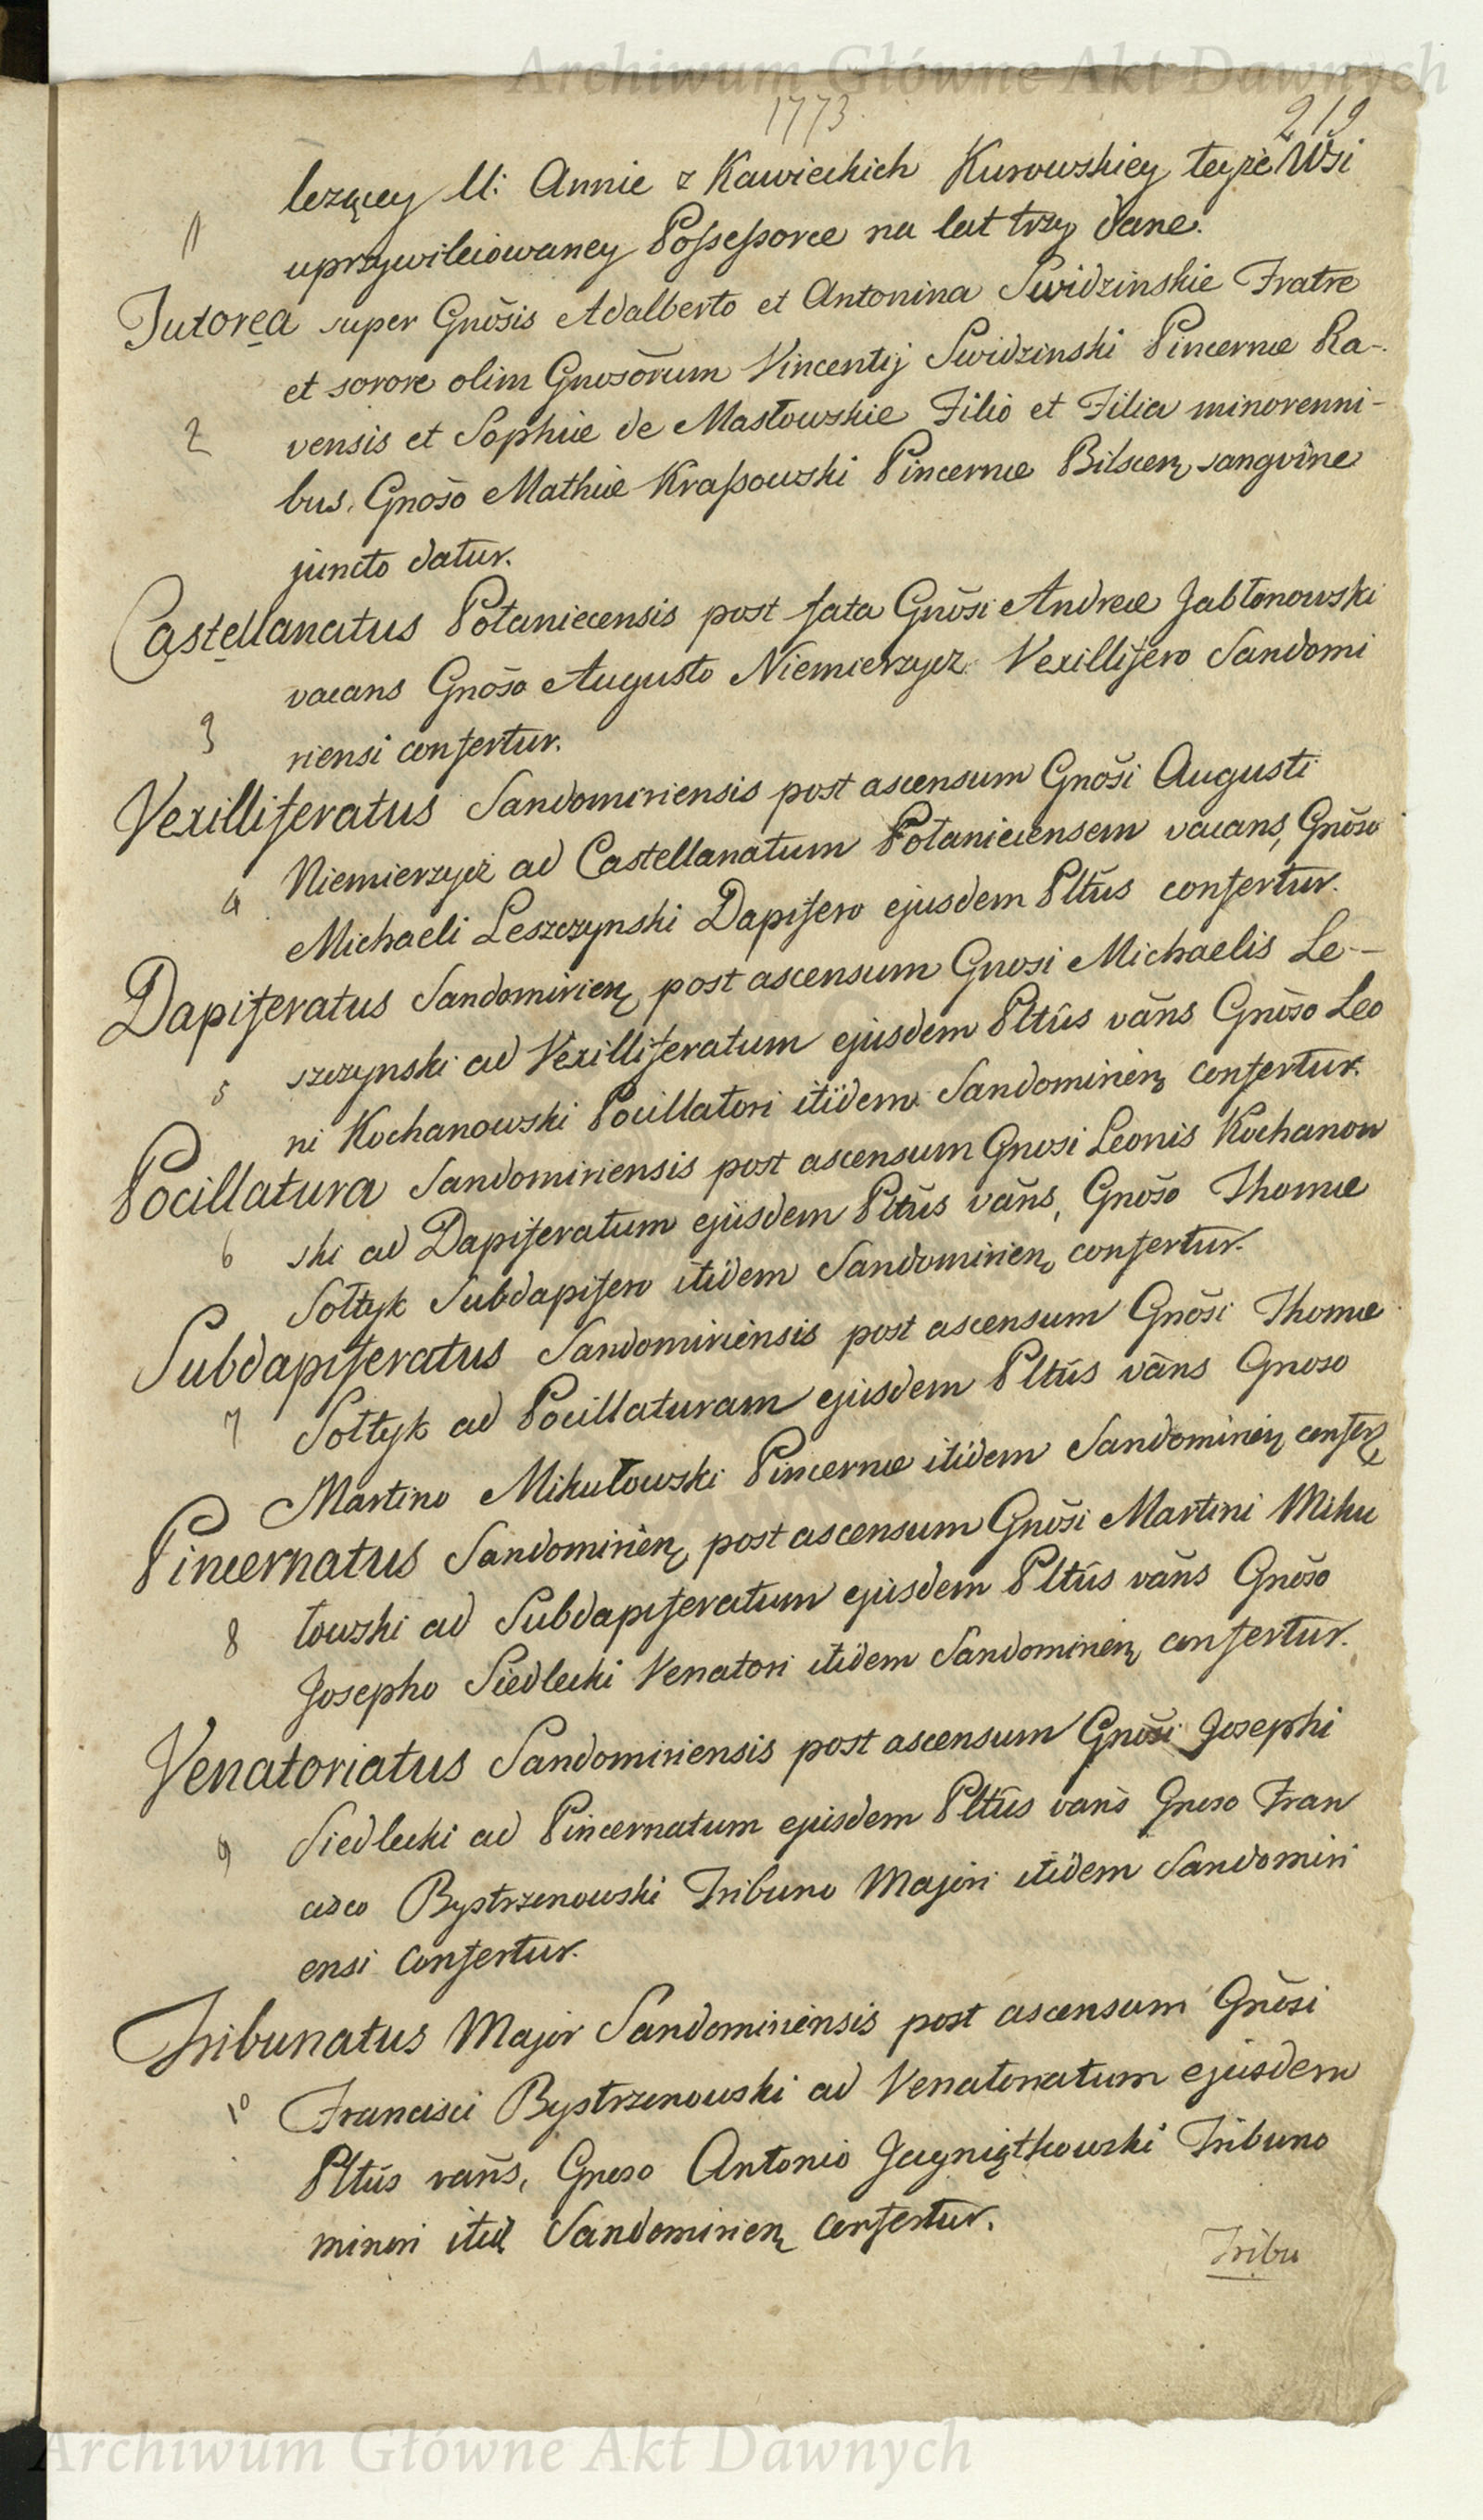 Archiwum Główne Akt Dawnych
1773. 219
lezącey U: Annie z Kawieckich Kurowskiey teyże Wsi
11 uprzywileiowaney Possessorce na lat trzy dane.
Tutorea super Gnõsis Adalberto et Antonina Swidzinskie Fratre
et sorore olim Gnosõrum Vincentij Swidzinski Pincernæ Ra-
2 vensis et Sophiæ de Masłowskie Filio et Filia minorenni-
bus, Gnõso Mathiæ Krassowski Pincernæ Bilscen, sangvine
juncto datur.
Castellanatus Połaniecensis post fata Gnõsi Andreæ Jabłonowski
vacans Gnõso Augusto Niemierzycz Vexillifero Sandomi
3 riensi confertur.
Vexilliferatus Sandomiriensis post ascensum Gnõsi Augusti
4 Niemierzycz ad Castellanatum Połaniecensem vacans, Gnõso
Michaeli Leszczynski Dapifero ejusdem Pltũs confertur.
Dapiferatus Sandomirien, post ascensum Gnosi Michaelis Le-
5 szczynski ad Vexilliferatum ejusdem Pltũs vãns Gnõso Leo
ni Kochanowski Pocillatori itidem Sandomirien, confertur.
Pocillatura Sandomiriensis post ascensum Gnosi Leonis Kochanow
6 ski ad Dapiferatum ejusdem Pltũs vãns, Gnõso Thomæ
Sołtyk Subdapifero itidem Sandomirien, confertur.
Subdapiferatus Sandomiriensis post ascensum Gnõsi Thomæ
7 Sołtyk ad Pocillaturam ejusdem Pltũs vãns Gnoso
Martino Mikułowski Pincernæ itidem Sandomirien, confer,
Pincernatus Sandomirien, post ascensum Gnõsi Martini Miku
8 łowski ad Subdapiferatum ejusdem Pltũs vãns Gnõso
Josepho Siedlecki Venatori itidem Sandomirien, confertur.
Venatoriatus Sandomiriensis post ascensum Gnõsi Josephi
9 Siedlecki ad Pincernatum ejusdem Pltũs vãns Gnoso Fran
cisco Bystrzonowski Tribuno Majori itidem Sandomiri
ensi confertur.
Tribunatus Major Sandomiriensis post ascensum Gnõsi
10 Francisci Bystrzonowski ad Venatoriatum ejusdem
Pltũs vãns, Gnoso Antonio Jagniątkowski Tribuno
minori itid, Sandomirien, confertur.
Tribu
Archiwum Główne Akt Dawnych